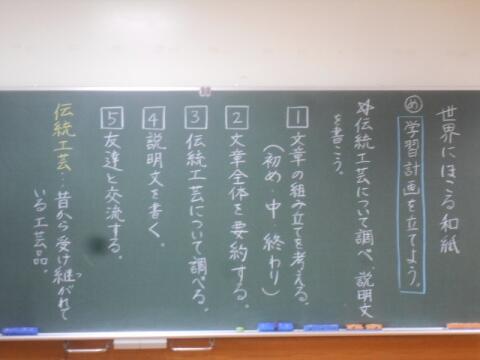 世界にほこる和紙
め 学習計画を立てよう。
伝統工芸について調べ、説明文
を書こう。
1 文章の組み立てを考える。
(初め・中・終わり)
2 文章全体を要約する。
3 伝統工芸について調べる。
4 説明文を書く。
5 友達と交流する。
伝統工芸…昔から受け継がれて
いる工芸品。